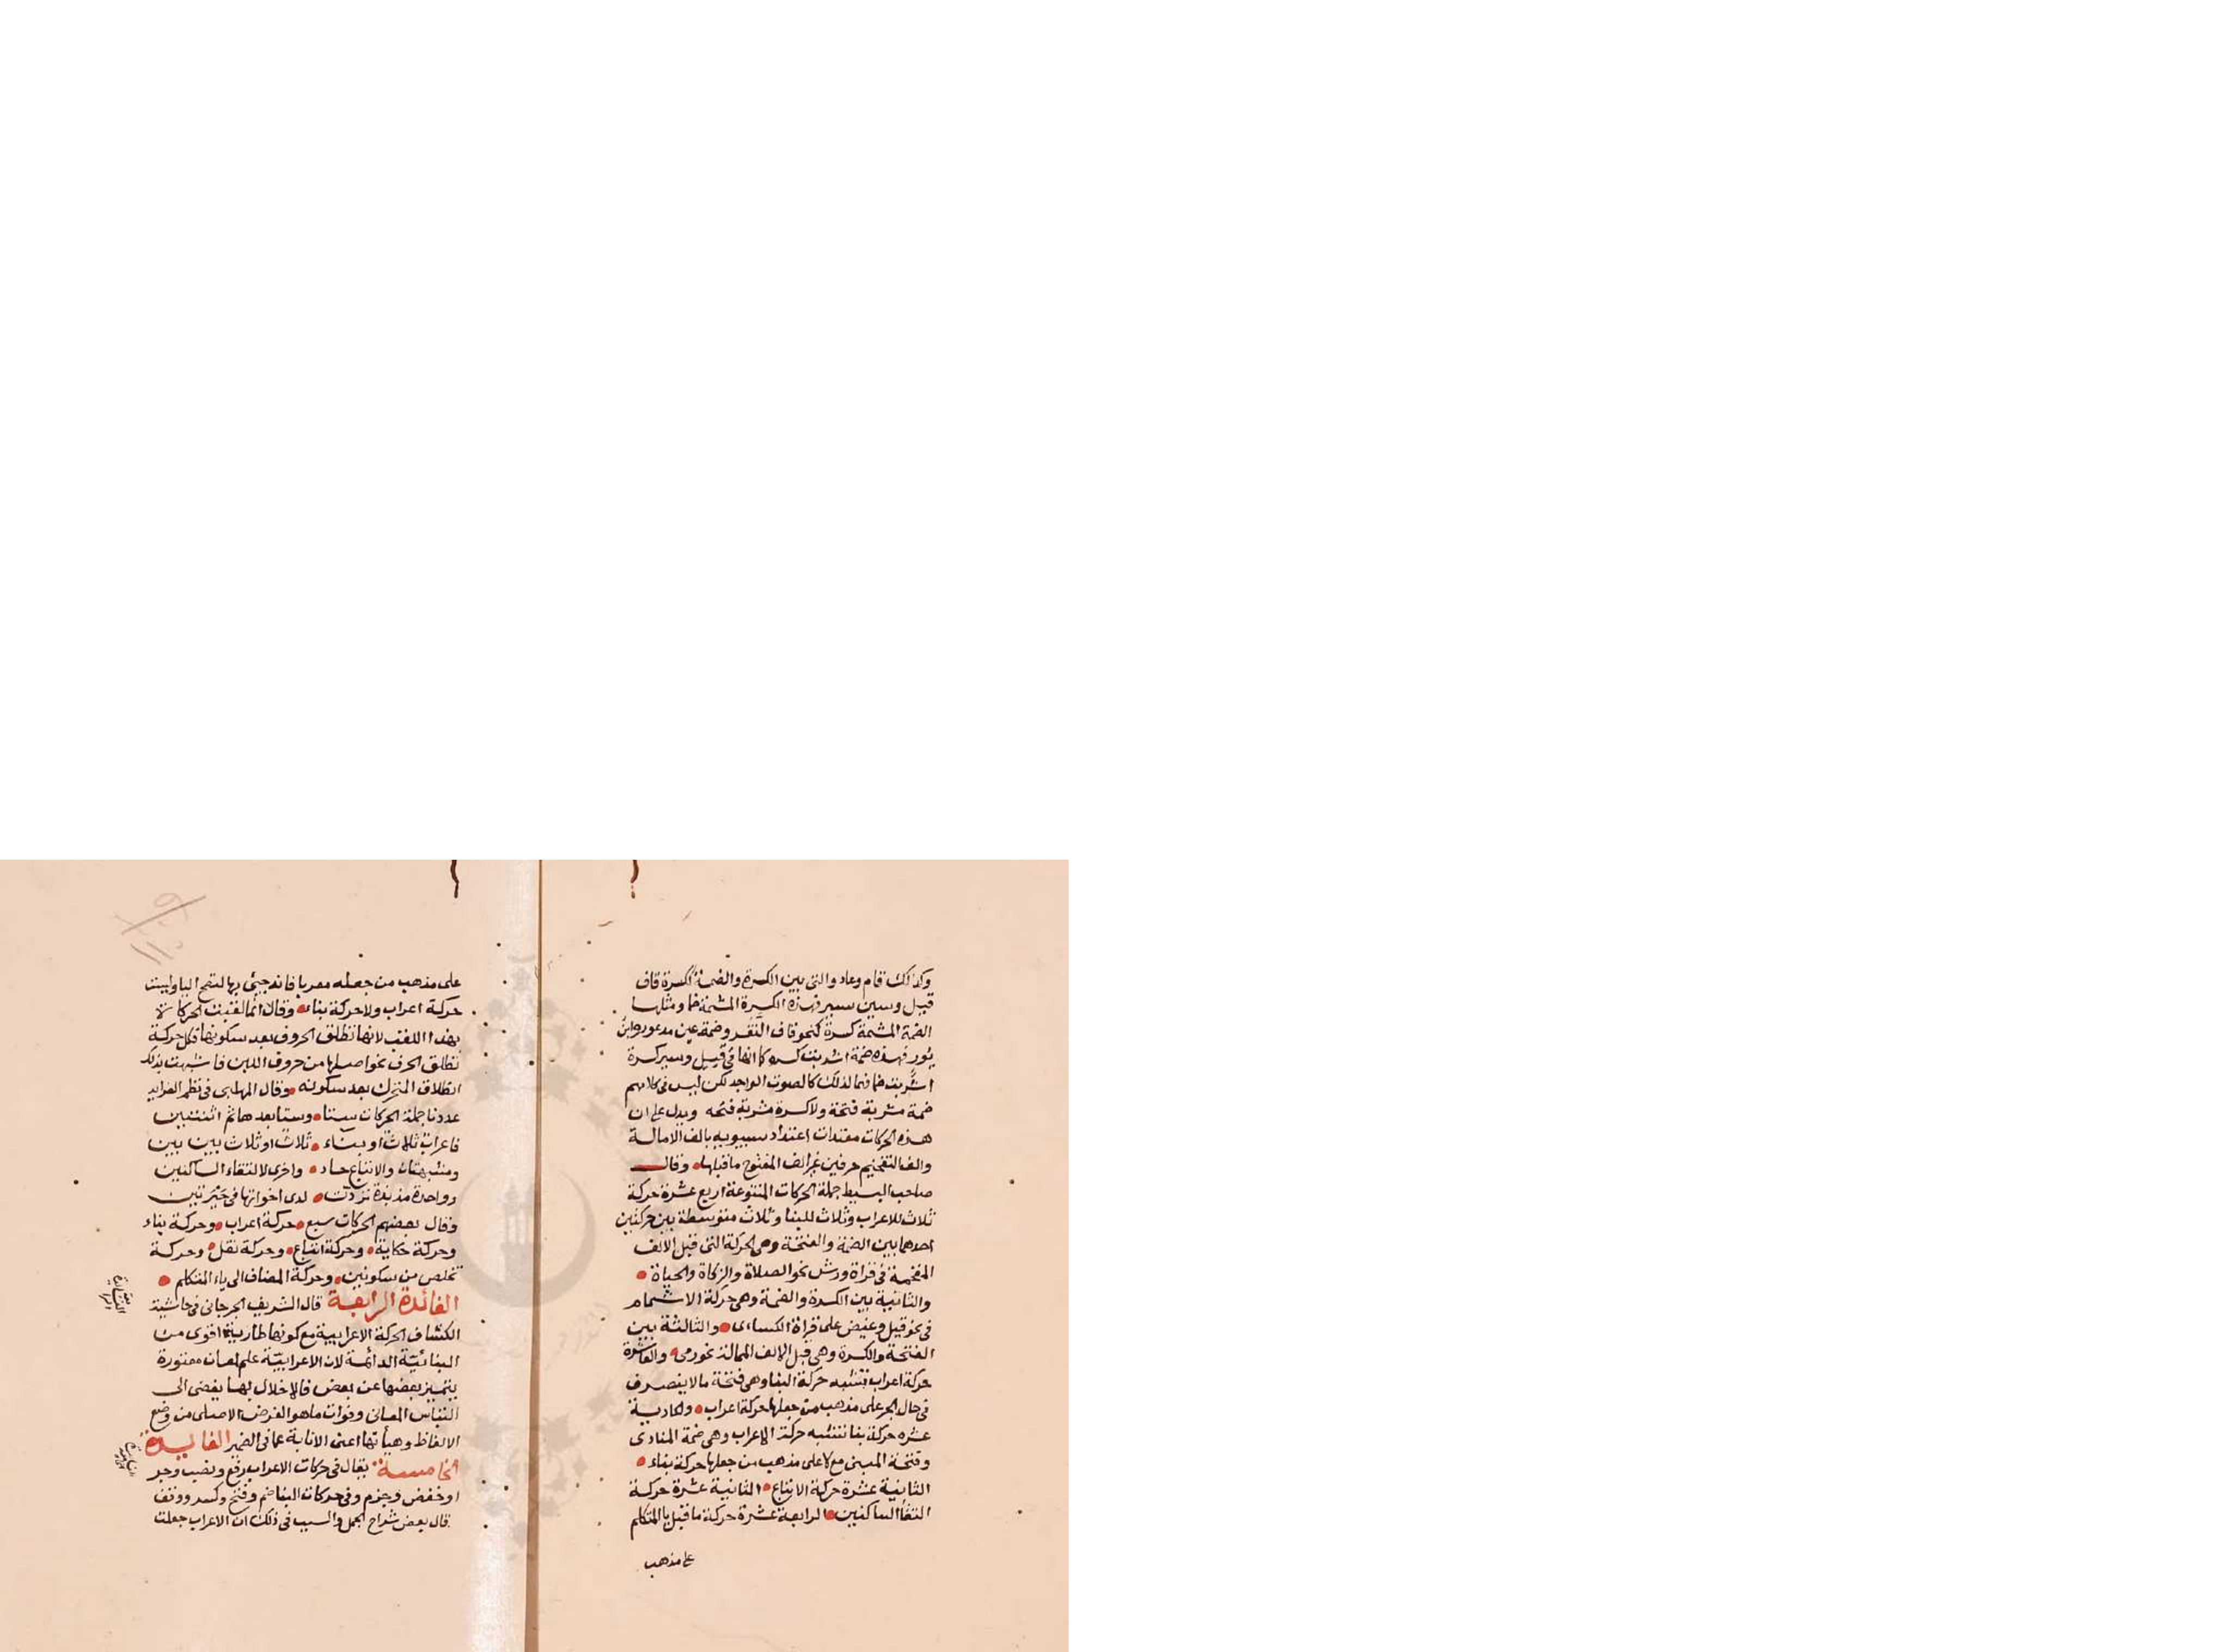 وكذلك قام وعاد والتي بين الكسرة والضمة ككسرة قاف
قيل وسين سير فهذه الكسرة المشمة ضما ومثلها
الضمة المشمة كسرة كنحو قاف النقر وضمة عين مذعور وابن
بور فهذه ضمة اشربت كسره كما انها في قيل وسير كسرة
اشربت ضما فهما لذلك كالصوت الواحد لكن ليس في كلامهم
ضمة مشربة فتحة ولا كسرة مشربة فتحه ويدل على ان
هذه الحركات معتدات اعتداد سيبويه بالف الامالة
والف التفخيم حرفين غير الف المفتوح ما قبلها وقال
صاحب البسيط جملة الحركات المتنوعة اربع عشرة حركة
ثلاث للاعراب وثلاث للبنا وثلاث متوسطة بين حركتين
احدهما بين الضمة والفتحة وهي الحركة التي قبل الالف
المفخمة في قراة ورش نحو الصلاة والزكاة والحياة
والثانية بين الكسرة والضمة وهي حركة الاشمام
في نحو قيل وغيض على قراة الكساءى والثالثة بين
الفتحة والكسرة وهي قبل الالف الممالة نحو رمى والعاشرة
حركة اعراب تشبه حركة البنا وهي فتحة ما لا ينصرف
في حال الجر على مذهب من جعلها حركة اعراب والحادية
عشره حركة بنا تشبه حركة الاعراب وهي ضمة المنادى
وفتحة المبنى مع لا على مذهب من جعلها حركة بناء
الثانية عشرة حركة الاتباع الثانية عشرة حركة
التقا الساكنين الرابعة عشرة حركة ما قبل يا المتكلم
على مذهب
على مذهب من جعله معربا فانه جيئ بها لتصح اليا وليست
حركة اعراب ولا حركة بناء وقال انما لقبت الحركات
بهذا اللقب لانها تطلق الحروف بعد سكونها فكل حركة
تطلق الحرف نحو اصلها من حروف اللين فاشبهت بذلك
انطلاق المتحرك بعد سكونه وقال المهلبى في نظم الفرايد
عددنا جملة الحركات ستا وستا بعدها ثم اثنتين
فاعراب ثلاث او بناء ثلاث او ثلاث بين بين
ومشبهتان والاتباع حاد واخرى لالتقاء الساكنين
وواحدة مذبذبة تردت لدى اخواتها في حيرتين
وقال بعضهم الحركات سبع حركة اعراب وحركة بناء
وحركة حكاية وحركة اتباع وحركة نقل وحركة
تخلص من سكونين وحركة المضاف الى ياء المتكلم
الفائدة الرابعة قال الشريف الجرجانى في حاشية
الكشاف الحركة الاعرابية مع كونها طارية اقوى من
البنائية الدائمة لان الاعرابية علم لمعان معتورة
يتميز بعضها عن بعض فالاخلال بها يفضى الى
التباس المعانى وفوات ما هو الغرض الاصلى من وضع
الالفاظ وهياتها اعنى الابانة عما في الضمير الفايدة
الخامسة يقال في حركات الاعراب رفع ونصب وجر
او خفض وجزم وفي حركات البنا ضم وفتح وكسر ووقف
قال بعض شراح الجمل والسبب في ذلك ان الاعراب جعلت